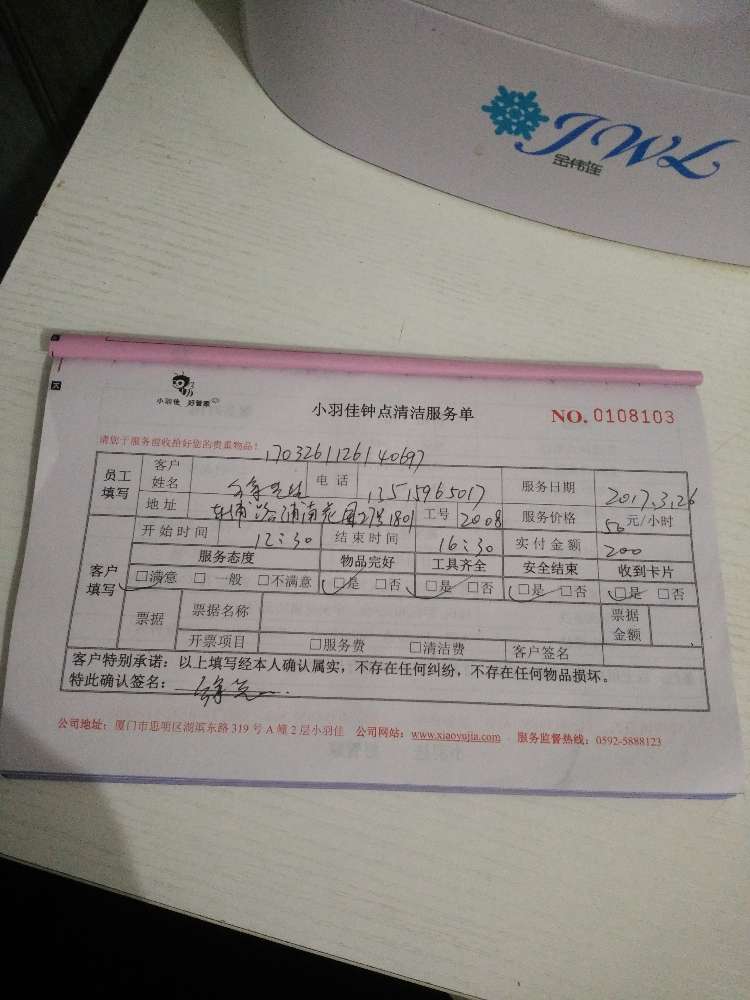 JWL
金伟连
小羽佳 好管家
小羽佳钟点清洁服务单
NO. 0108103
请您于服务前收拾好您的贵重物品!
1703261126140697
员工填写 客户姓名 徐 电话 13515965017 服务日期 2017.3.26
地址 东浦路浦南花园27号1801 工号 2008 服务价格 50元/小时
开始时间 12:30 结束时间 16:30 实付金额 200
客户填写 服务态度 物品完好 工具齐全 安全结束 收到卡片
□满意 □一般 □不满意 □是 □否 □是 □否 □是 □否 □是 □否
票据 票据名称 票据金额
开票项目 □服务费 □清洁费 客户签名
客户特别承诺:以上填写经本人确认属实,不存在任何纠纷,不存在任何物品损坏。
特此确认签名: 徐
公司地址:厦门市思明区湖滨东路 319 号 A 幢 2 层小羽佳 公司网站:www.xiaoyujia.com 服务监督热线:0592-5888123